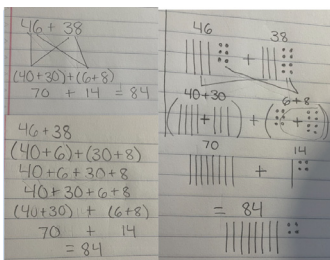 46 + 38
(40+30)+(6+8)
70 + 14 = 84
46+38
(40+6)+(30+8)
40+6+30+8
40+30+6+8
(40+30) + (6+8)
70 + 14
= 84
46 38
+
40+30 6+8
( + ) + ( + )
70 14
+
= 84